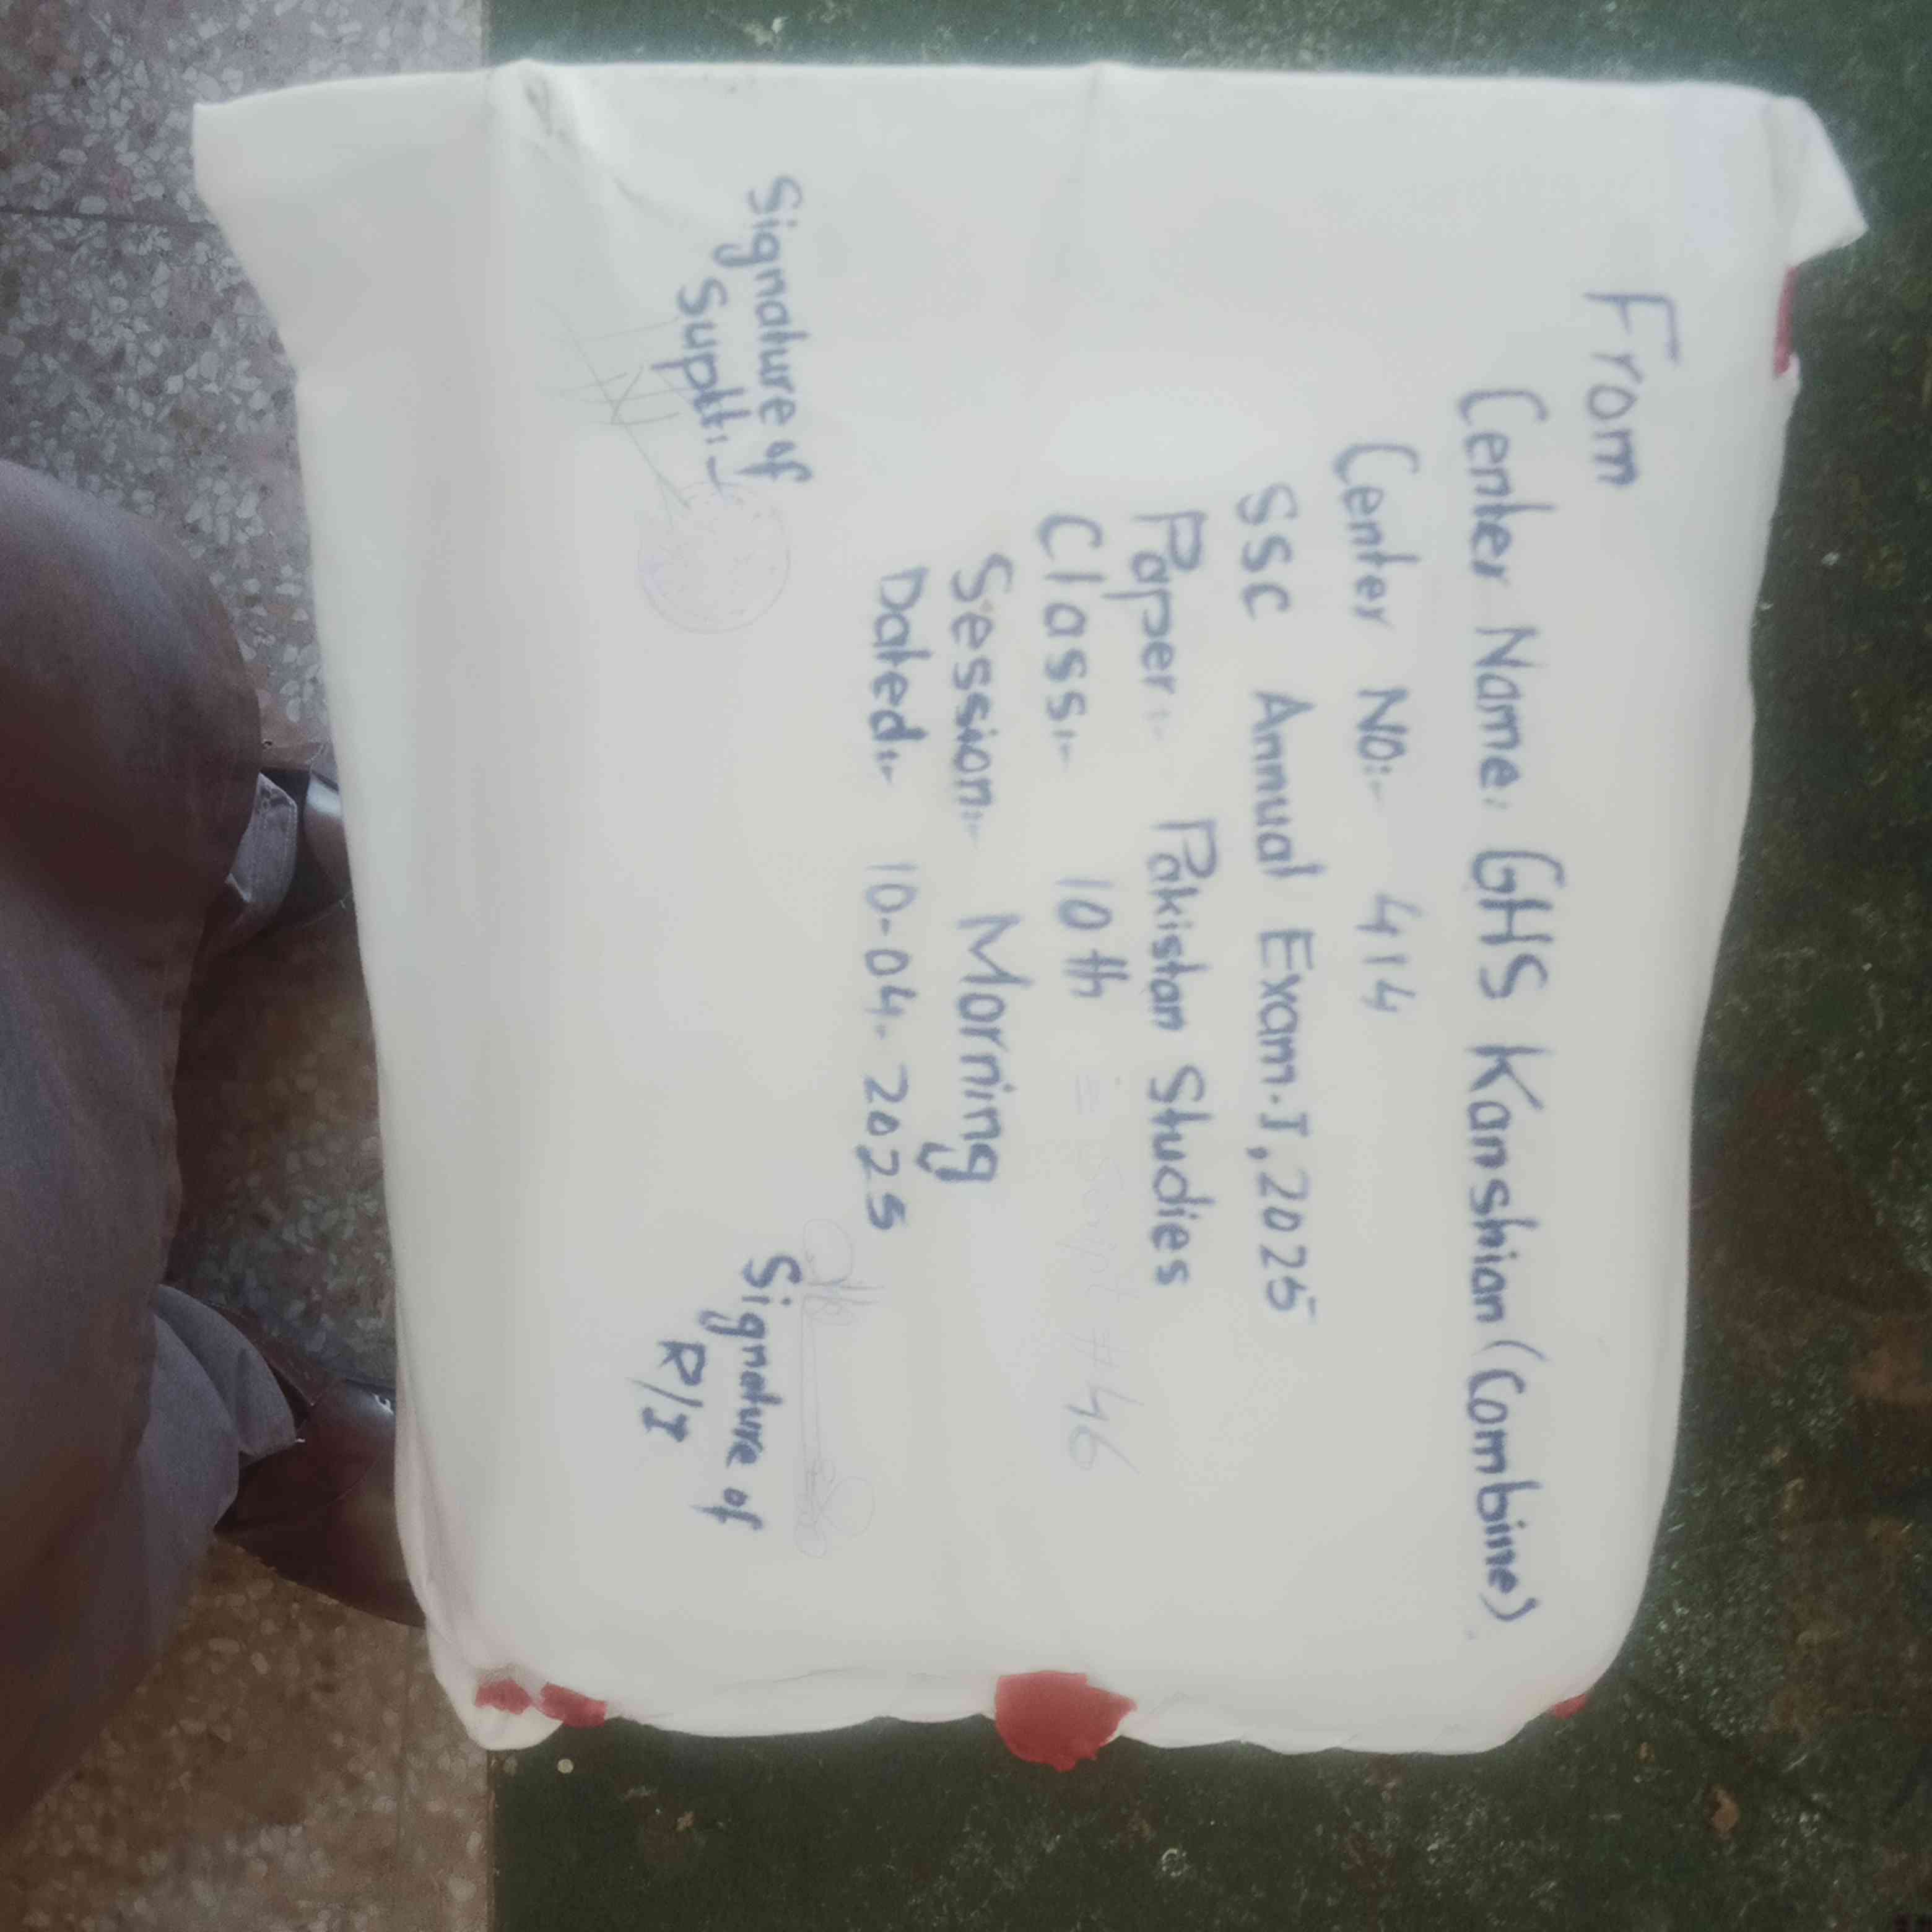 From
Center Name: GHS Kanshian (Combine)
Center No:- 414
SSC Annual Exam-I, 2025
Paper:- Pakistan Studies
Class:- 10th = # 46
Session:- Morning
Dated:- 10-04-2025
Signature of
Suptt:-
Signature of
R/I